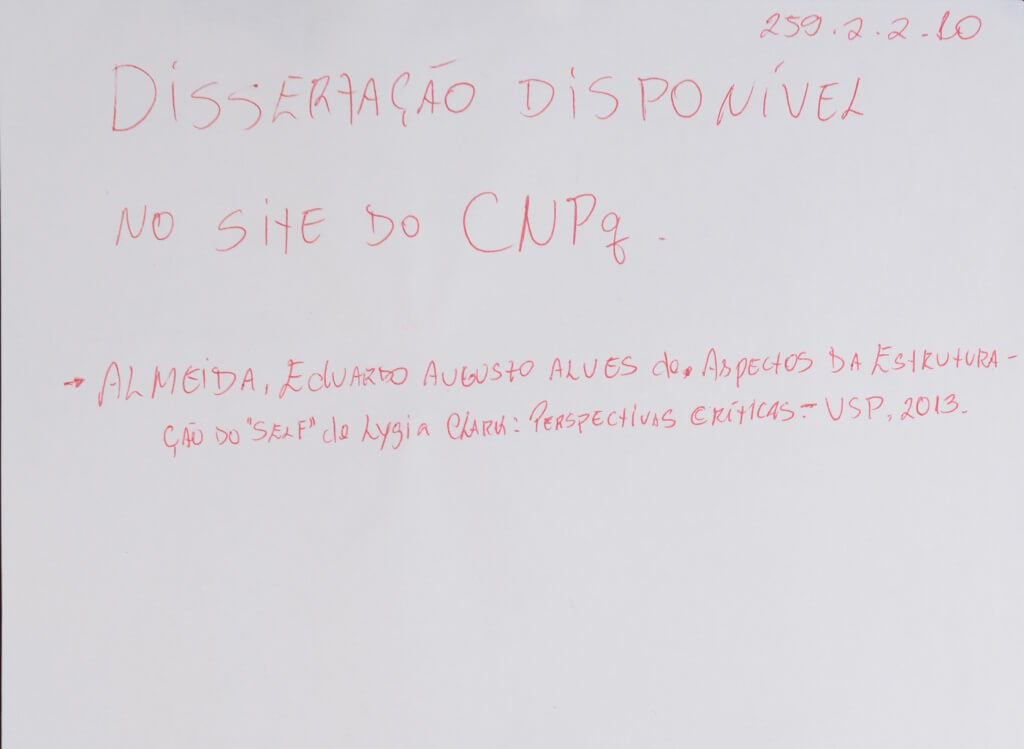 259.2.2-10
DISSERTAÇÃO DISPONÍVEL
NO SITE DO CNPq.
→ ALMEIDA, EDUARDO AUGUSTO ALVES de. ASPECTOS DA ESTRUTURA-
ÇÃO DO "SELF" de Lygia CLARK: PERSPECTIVAS CRÍTICAS - USP, 2013.